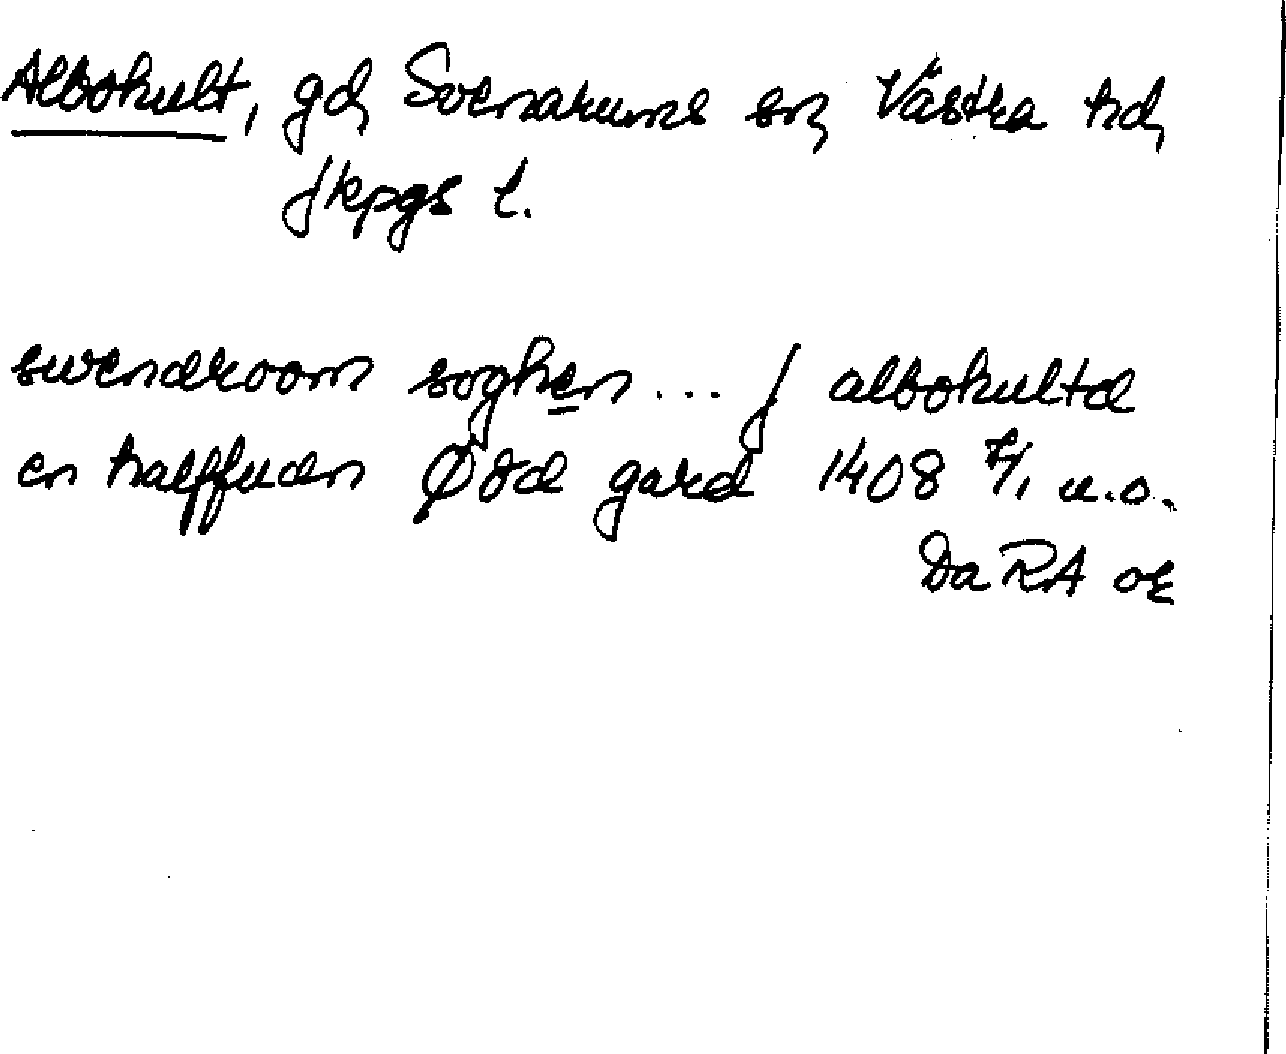 Albokult, gd, Svenarums sn, Västra hd,
Jkpgs l.
swenaroom soghen ... j albokulta
en halffuan Øda gard 1408 7/1 u.o.
Da RA or